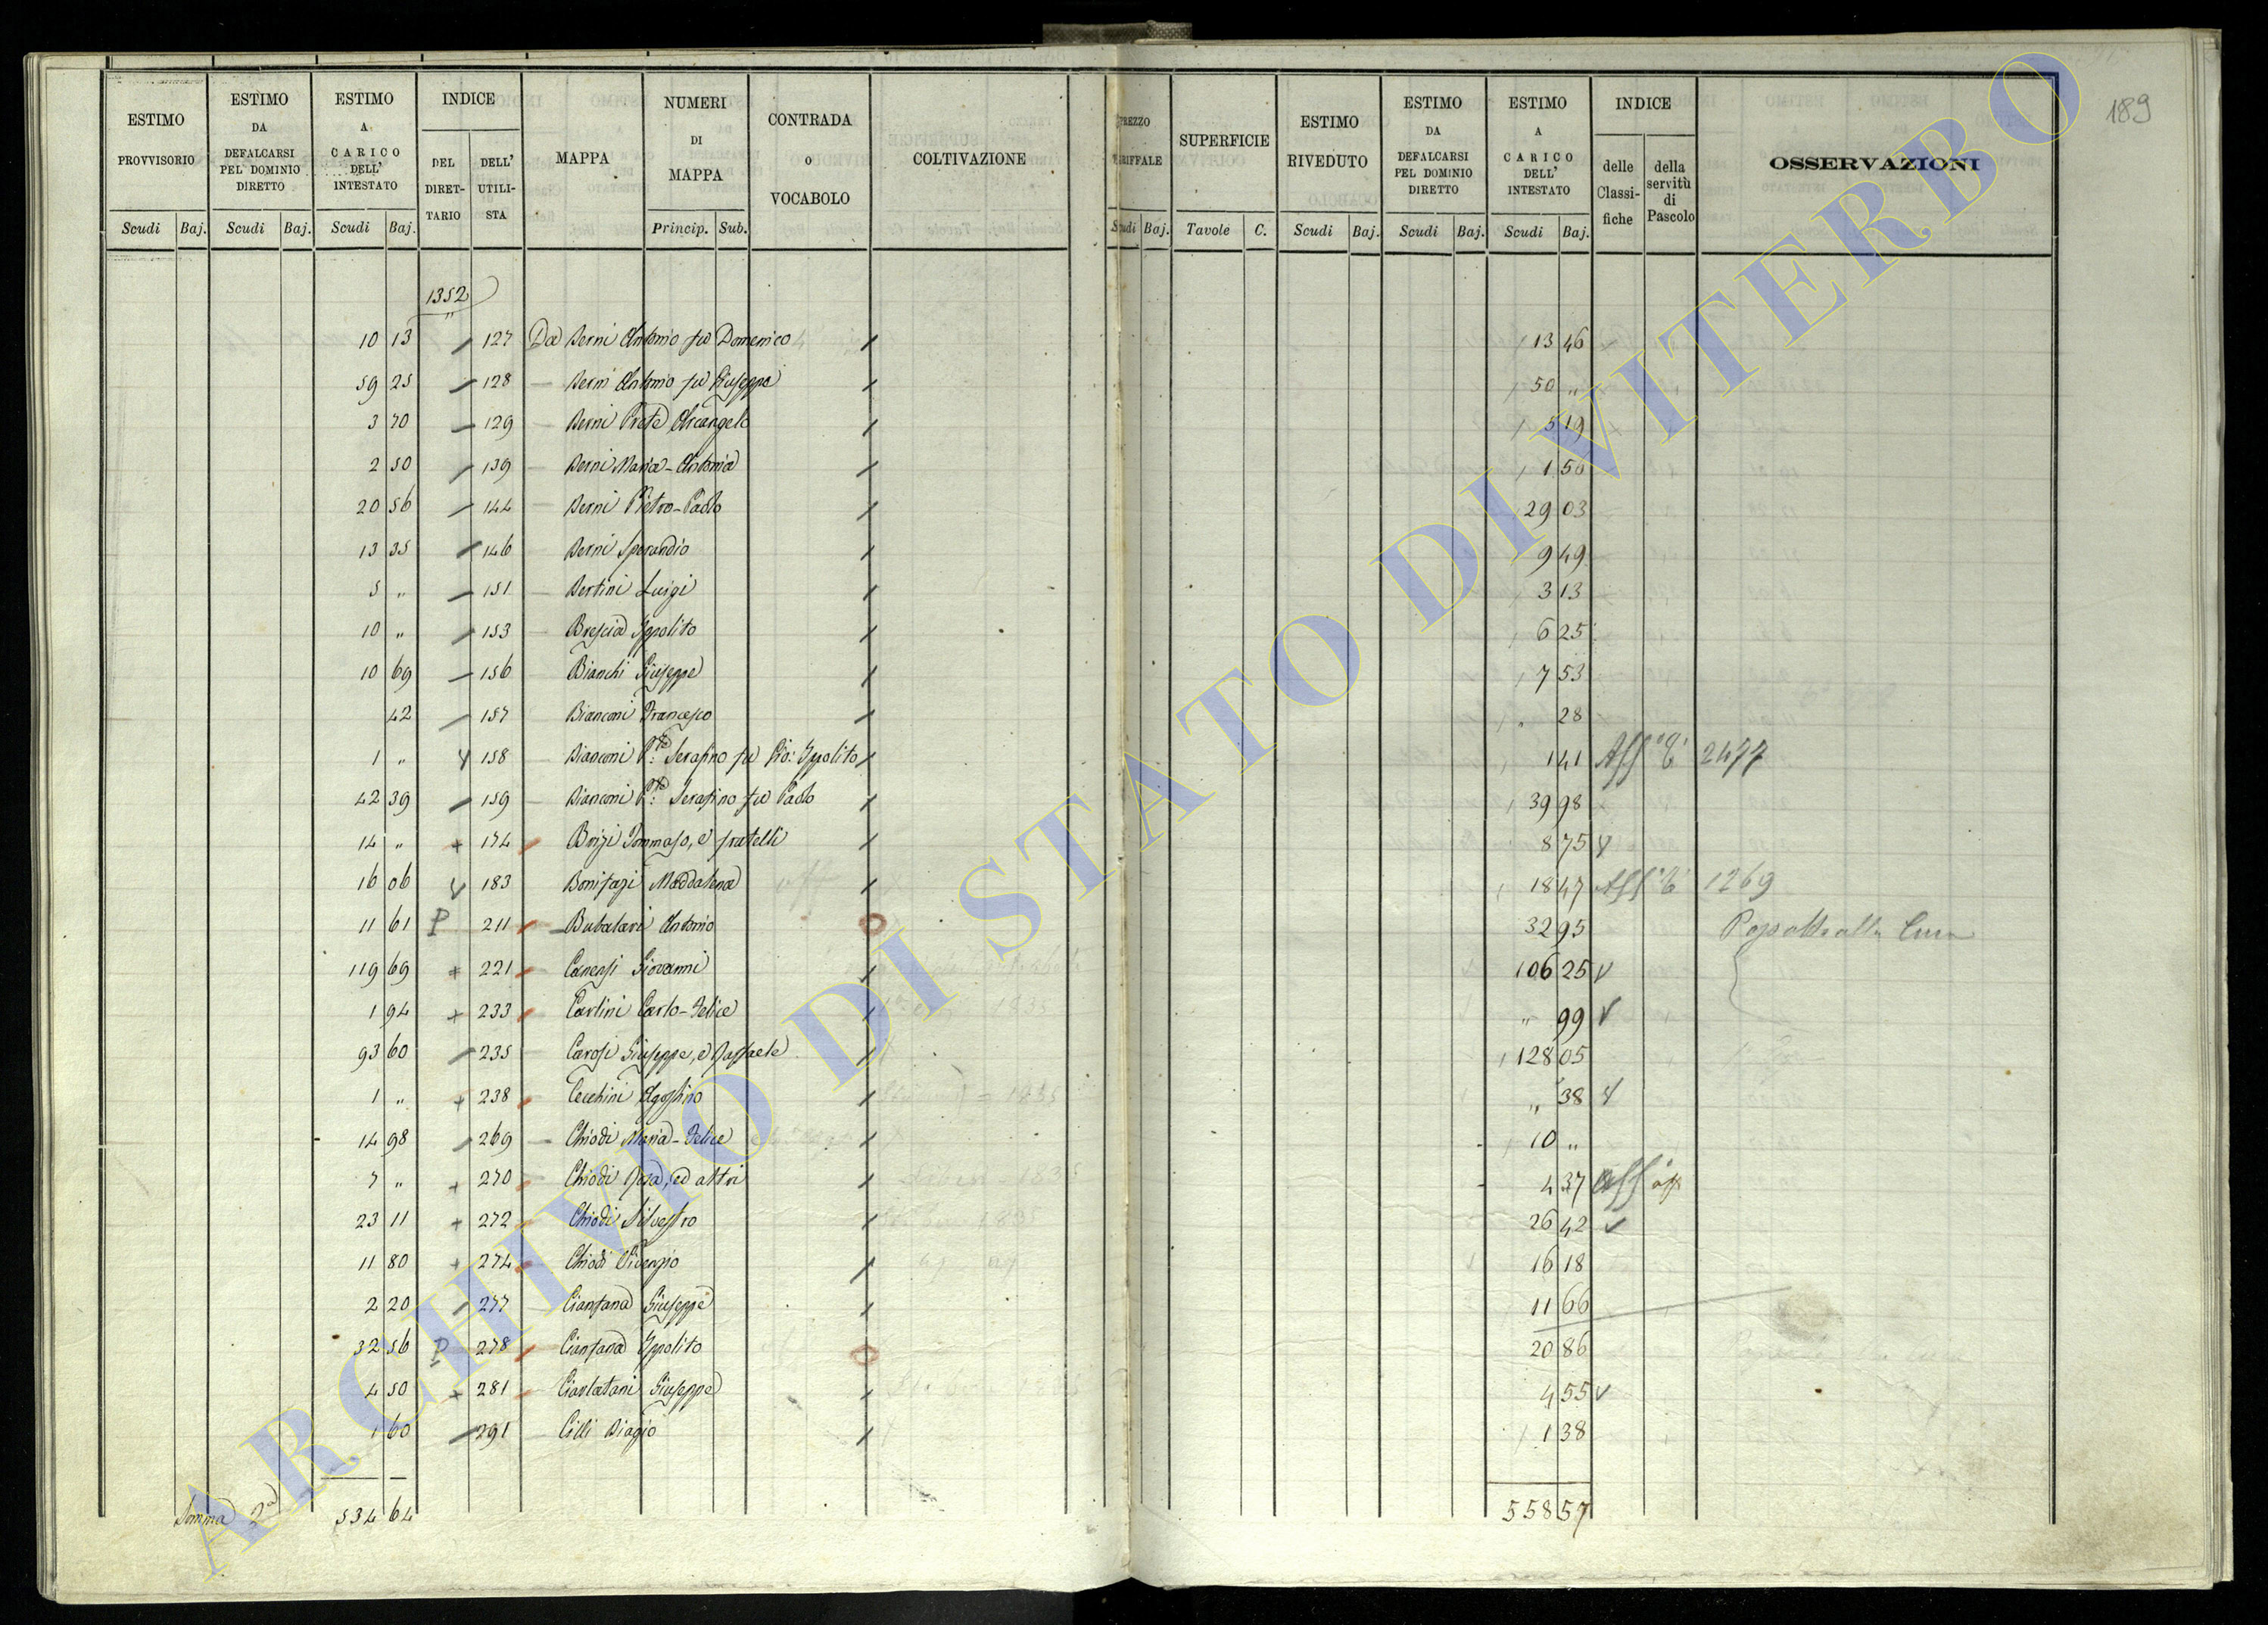 189
ESTIMO PROVVISORIO Scudi Baj.
ESTIMO DA DEFALCARSI PEL DOMINIO DIRETTO Scudi Baj.
ESTIMO A CARICO DELL' INTESTATO Scudi Baj.
INDICE DEL DIRET-TARIO DELL' UTILI-STA
MAPPA
NUMERI DI MAPPA Princip. Sub.
CONTRADA o VOCABOLO
COLTIVAZIONE
PREZZO TARIFFALE Scudi Baj.
SUPERFICIE Tavole C.
ESTIMO RIVEDUTO Scudi Baj.
ESTIMO DA DEFALCARSI PEL DOMINIO DIRETTO Scudi Baj.
ESTIMO A CARICO DELL' INTESTATO Scudi Baj.
INDICE delle Classi-fiche della servitù di Pascolo
OSSERVAZIONI
1352
10 13 127 Da Berni Antonio fu Domenico 13 46
59 25 128 — Berni Antonio fu Giuseppe 50 „
3 70 129 — Berni Prete Arcangelo 5 19
2 50 139 — Berni Maria-Antonia 1 50
20 56 144 — Berni Pietro-Paolo 29 03
13 35 146 — Berni Sperandio 9 49
5 „ 151 — Bertini Luigi 3 13
10 „ 153 — Brescia Ippolito 6 25
10 69 156 — Bianchi Giuseppe 7 53
42 157 — Bianconi Francesco „ 28
1 „ 158 — Bianconi Serafino fu Gio: Ippolito 1 41 Aff 2477
42 39 159 — Bianconi Serafino fu Paolo 39 98
14 „ + 174 Brizi Tommaso, e fratelli 8 75 V
16 06 183 Bonifazi Maddalena 18 47 Aff 1269
11 61 P 211 — Bubalari Antonio 32 95
119 69 + 221 — Canessi Giovanni 106 25 V
1 94 + 233 Carlini Carlo-Felice „ 99 V
93 60 235 — Carosi Giuseppe, e Raffaele 128 05
1 „ + 238 Cecchini Agostino „ 38 V
14 98 269 — Chiodi Maria-Felice 10 „
7 „ + 270 Chiodi Rosa, ed altri 4 37 Aff
23 11 + 272 Chiodi Silvestro 26 42 V
11 80 + 274 Chiodi Vicenzio 16 18
2 20 277 — Cianfana Giuseppe 11 66
32 56 P 278 — Cianfana Ippolito 20 86
4 50 + 281 Ciarlatani Giuseppe 4 55 V
1 60 291 — Cilli Biagio 1 38
Somma 2a 534 64 558 57
ARCHIVIO DI STATO DI VITERBO